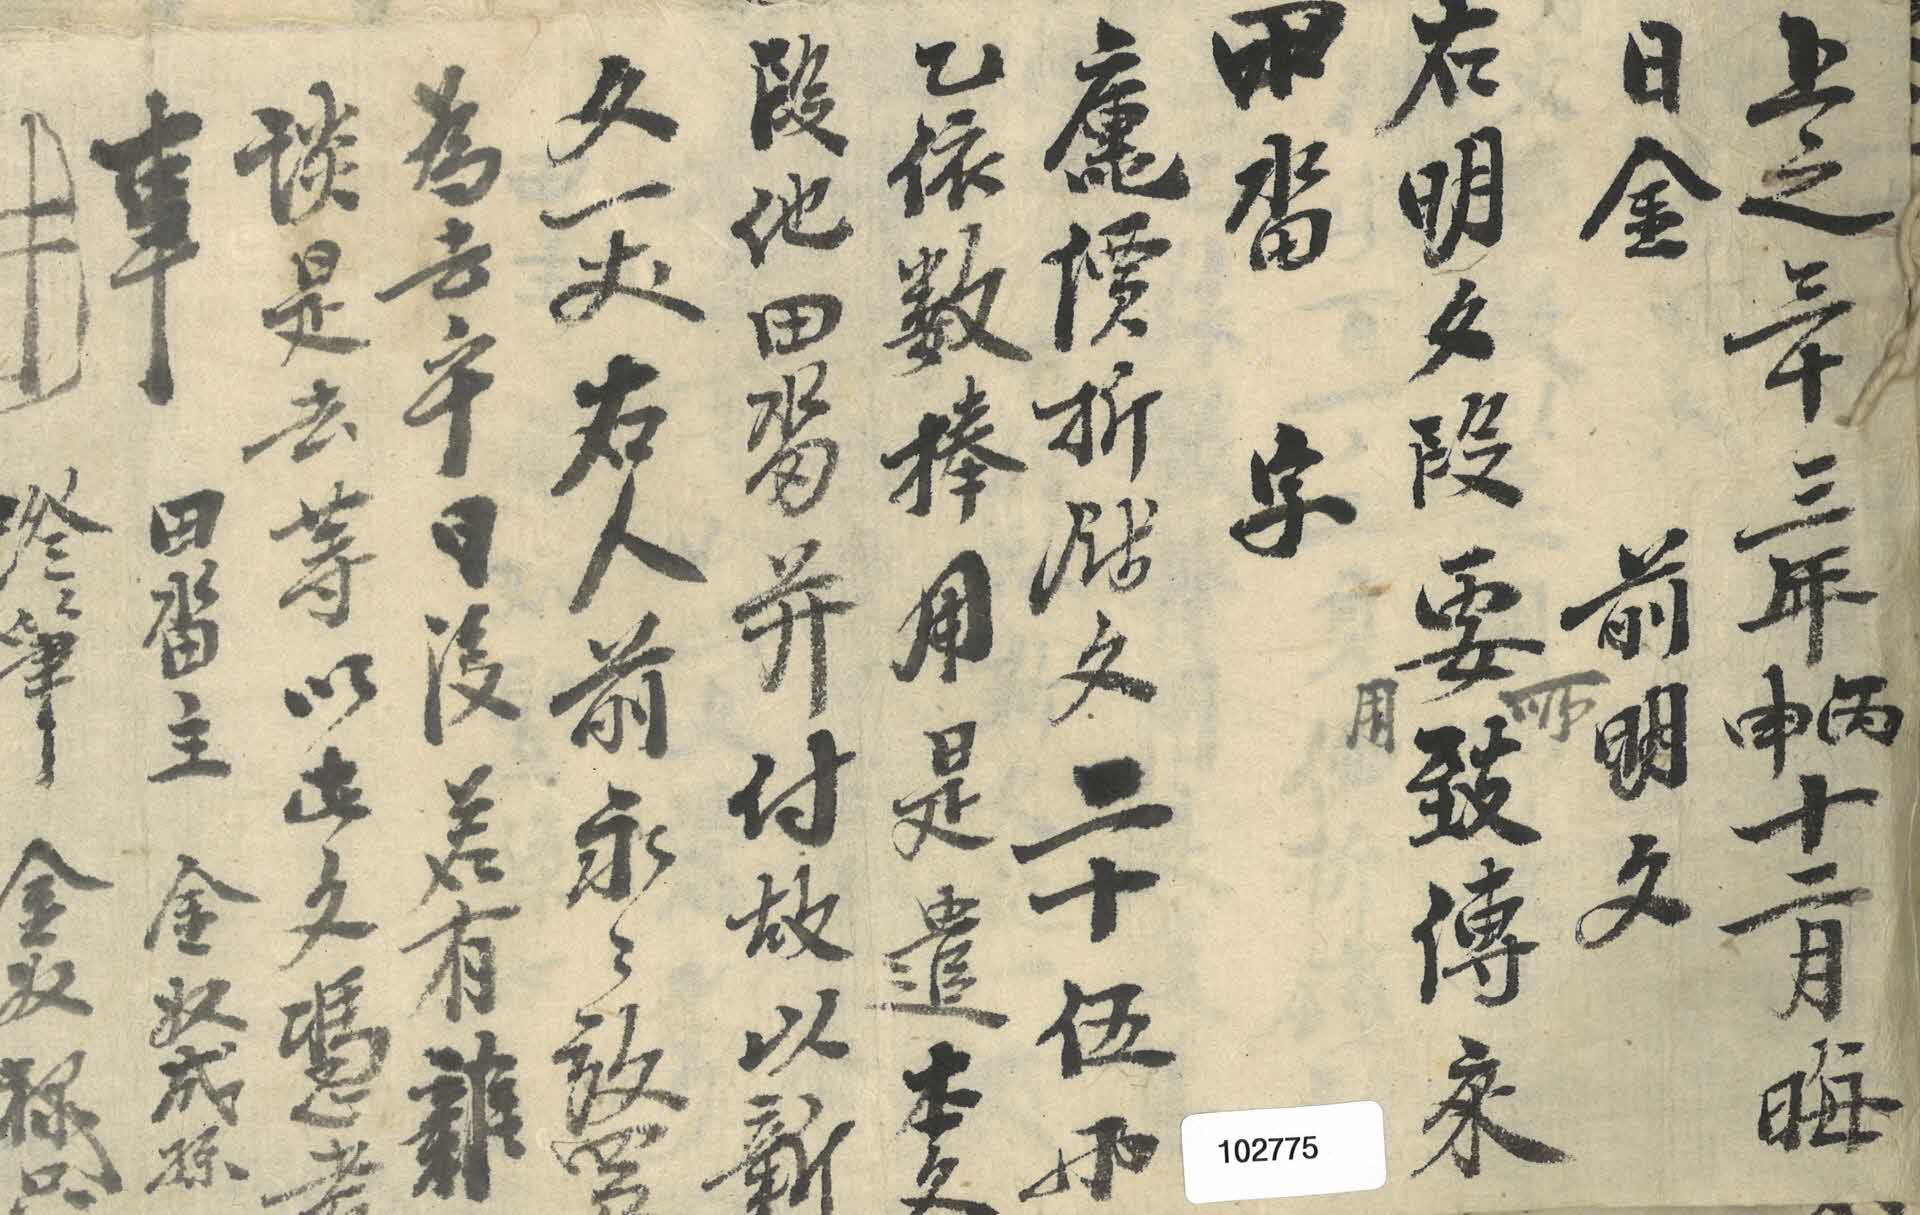 上之三十三年丙申十二月晦
日金 前明文
所
右明文段要致傳來
用
田畓 字
庫價折錢文二十伍兩
乙依數捧用是遣本文
段他田畓幷付故以新
文一丈右人前永〻放賣
為去乎日後若有雜
談是去等以此文憑考
事
田畓主 金奴成孫
證筆 金奴
102775